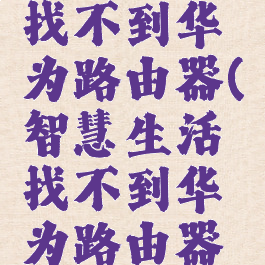 找不到华
为路由器(
智慧生活
找不到华
为路由器